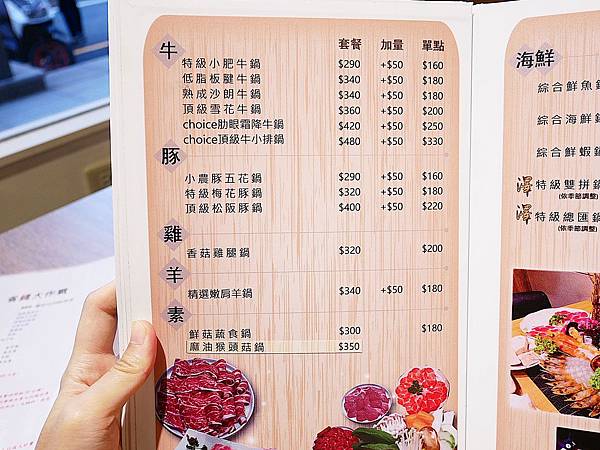 牛 套餐 加量 單點
特級小肥牛鍋 $290 +$50 $160
低脂板腱牛鍋 $340 +$50 $180
熟成沙朗牛鍋 $340 +$50 $180
頂級雪花牛鍋 $360 +$50 $200
choice肋眼霜降牛鍋 $420 +$50 $250
choice頂級牛小排鍋 $480 +$50 $330
豚
小農豚五花鍋 $290 +$50 $160
特級梅花豚鍋 $320 +$50 $180
頂級松阪豚鍋 $400 +$50 $220
雞
香菇雞腿鍋 $320 $200
羊
精選嫩肩羊鍋 $340 +$50 $180
素
鮮菇蔬食鍋 $300 $180
麻油猴頭菇鍋 $350
海鮮
綜合鮮魚鍋
綜合海鮮鍋
綜合鮮蝦鍋
潯 特級雙拼鍋
(依季節調整)
潯 特級總匯鍋
(依季節調整)
大作戰